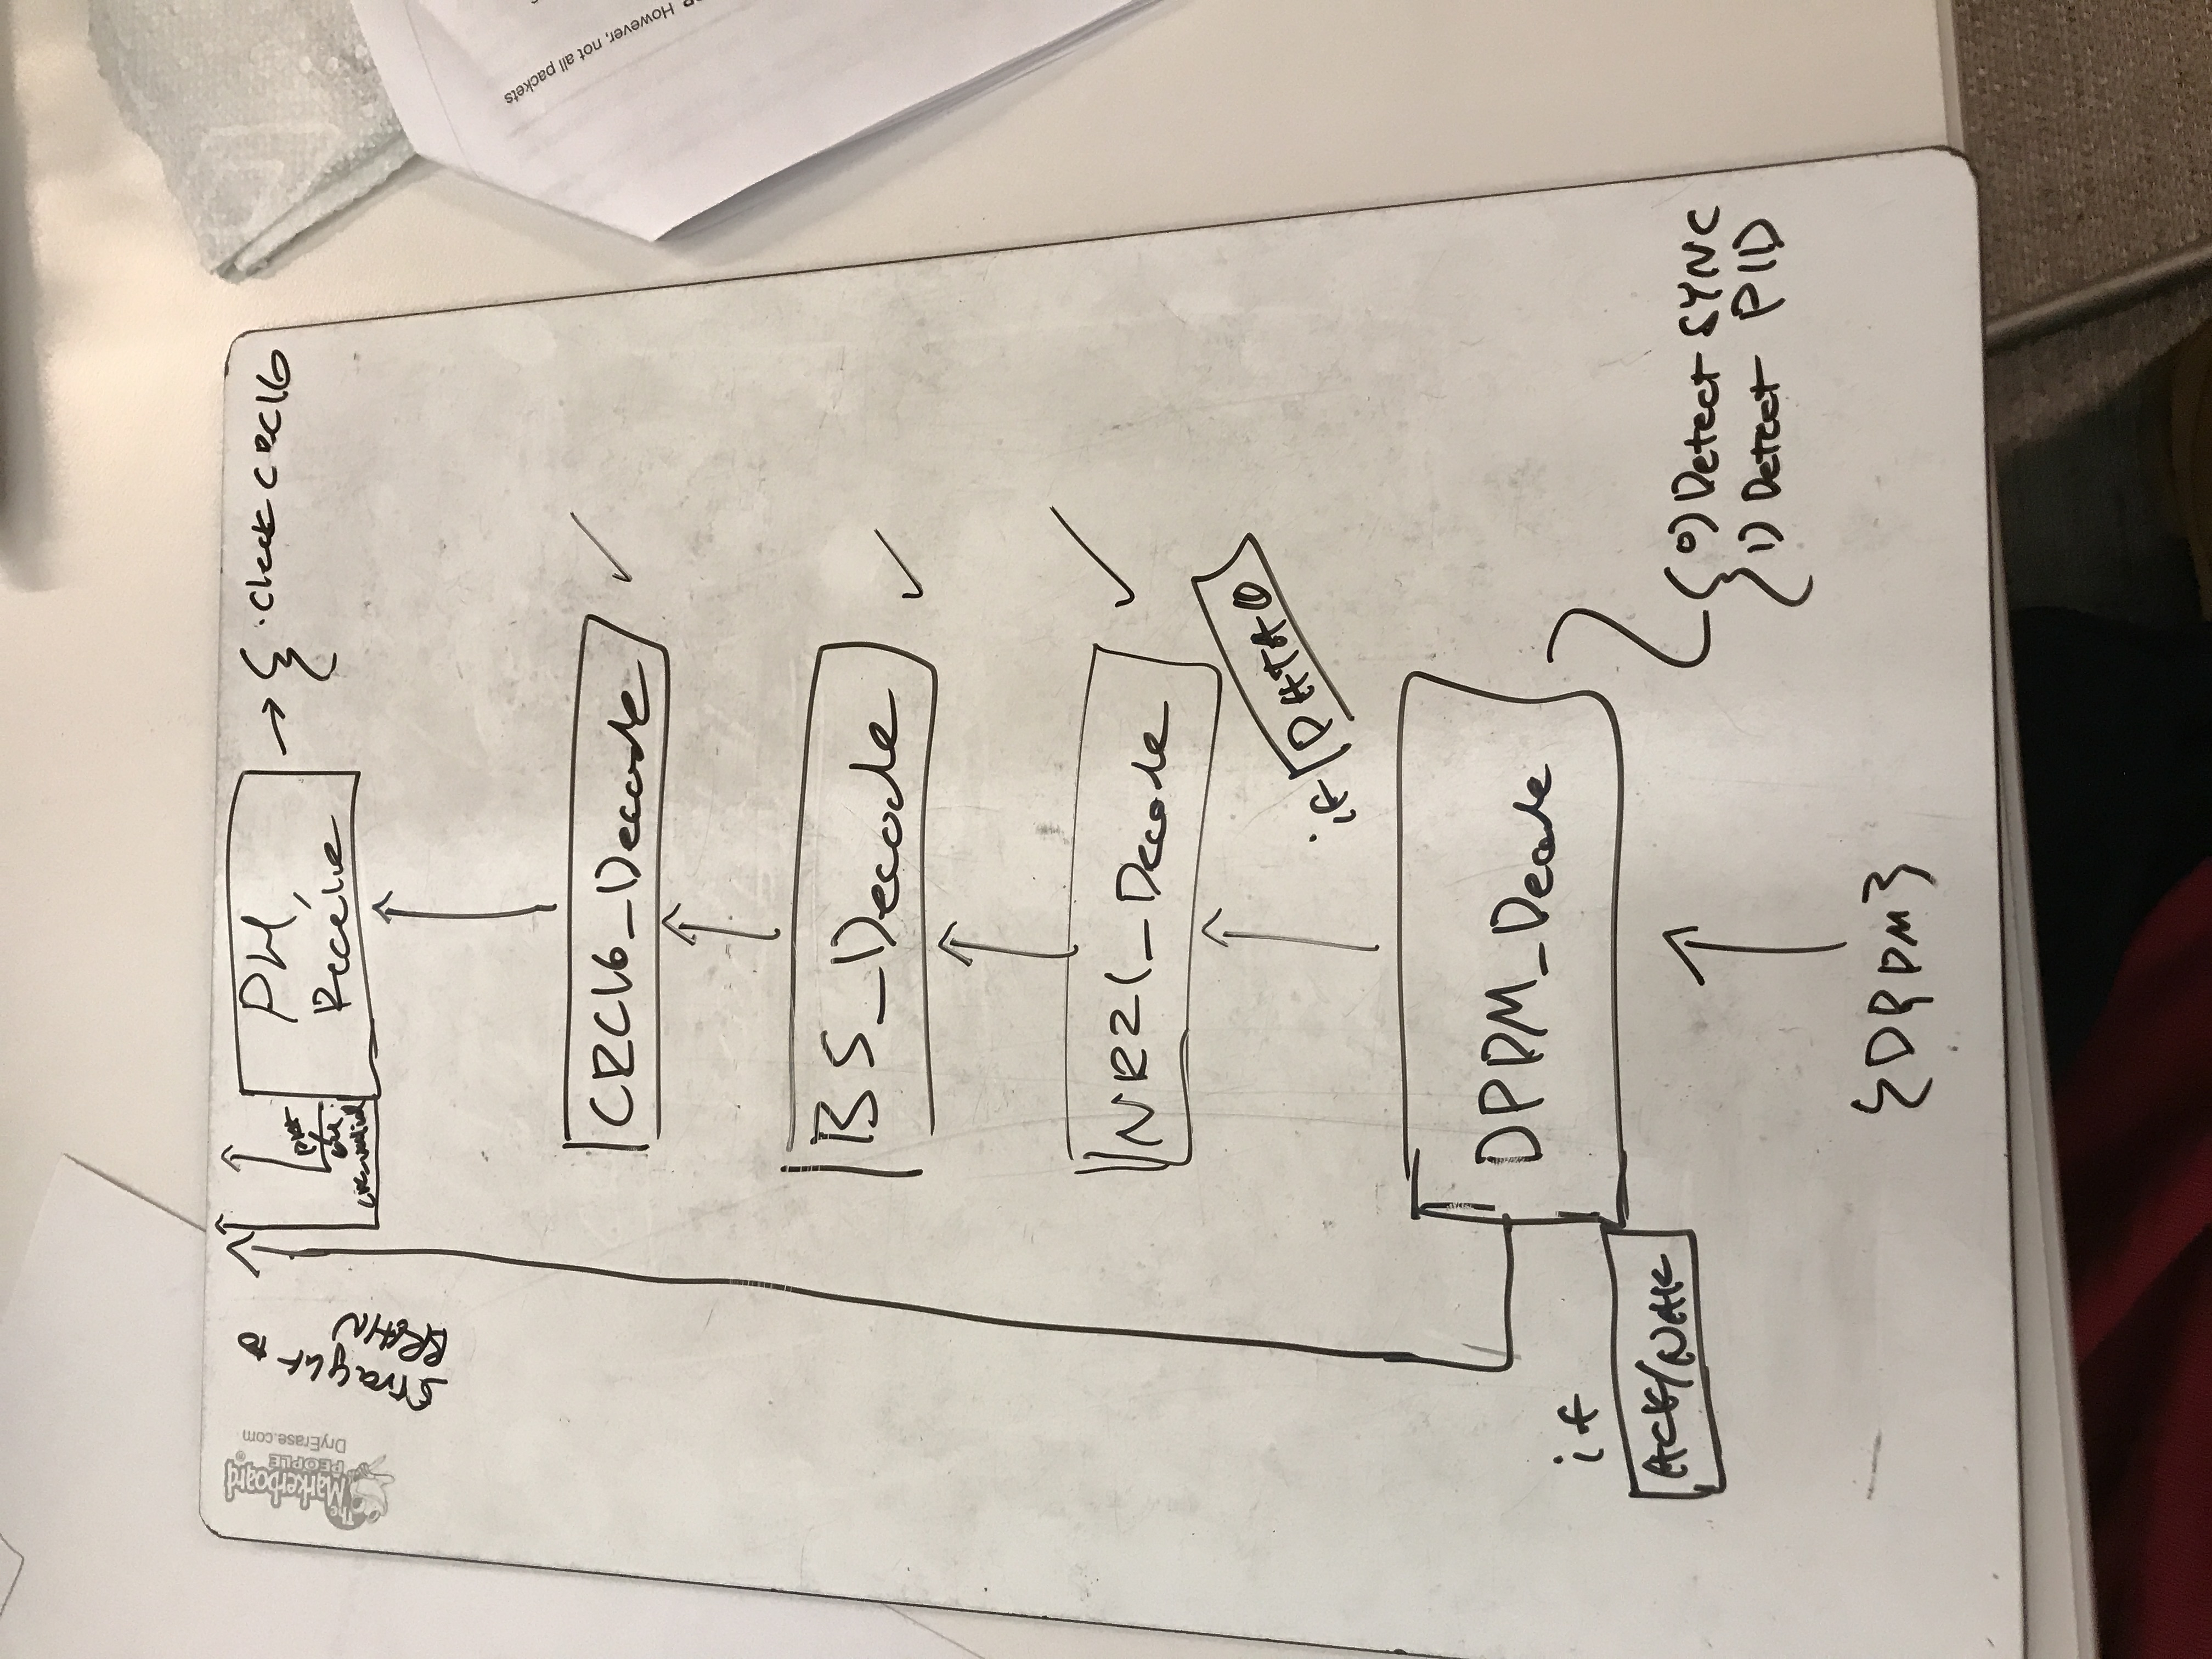 The
Markerboard
PEOPLE®
DryErase.com
Straight to
BRAIN
pkt
out
crc_valid
Receive
·Check CRC16
CRC16_Decode
BS_Decode
NRZI_Decode
if DATA0
DPDM_Decode
if
ACK/NAK
0) Detect SYNC
1) Detect PID
{DP,DM}
However, not all packets